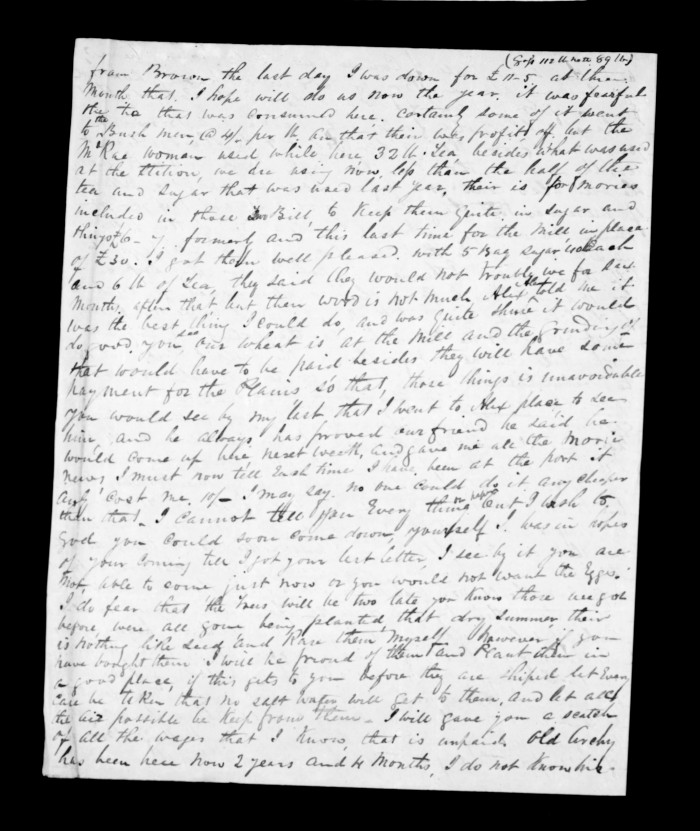 (Gross 112 lb nett 89 lb)
from Brown the last day I was down for £11-5 at three
Month that. I hope will do us now the year. it was fearful
the Tea that was consumed here. Certainly some of it went
to the Bush men, @ 4/- per lb. an that their was profit of. but the
McRae woman used while here, 32 lb Tea, besides what was used
at the Station, we are using now, less than the half of the
tea and sugar that was used last year, their is for
include in those Bill, to Keep them quite in sugar and
things £6 - formerly and this last time for the Mill in place
of £30. I got them well pleased. with 5 Bag sugar
and 6 lb of Tea, they said they would not trouble me for
Months after that but their word is not much, Alex told me it
was the best thing I could do, and was quite shure it would
do good. you see our wheat is at the Mill and the Grinding of
that would have to be paid besides they will have some
payment for the Plains so that, those things is unavoidable
you would see by my last that I went to Alex place to see
him, and he always has proved our friend he said he
would come up here next week, and gave me all the
news I must now tell Each time I have been at the port it
only cost me, 10/- I may say. no one could do it any cheaper
then that. I cannot tell you Every thing on paper but I wish to
God you could soon come down, yourself I was in hopes
of your coming till I got your last letter, I see by it you are
not able to come just now or you would not want the Eggs.
I do fear that the Trees will be two late you know those we got
before were all gone being planted that dry summer, their
is nothing like seed and Raise them myself. however if you
have bought them I will be prooud of them and Plant them in
a good place, if this gets to you before they are shiped let Every
care be taken that no salt water will get to them, and let all
the air possible be Keep from them - I will gave you a scatch
of all the wages that I Know, that is unpaid. Old Archy
has been here now 2 years and 4 Months, I do not Know his